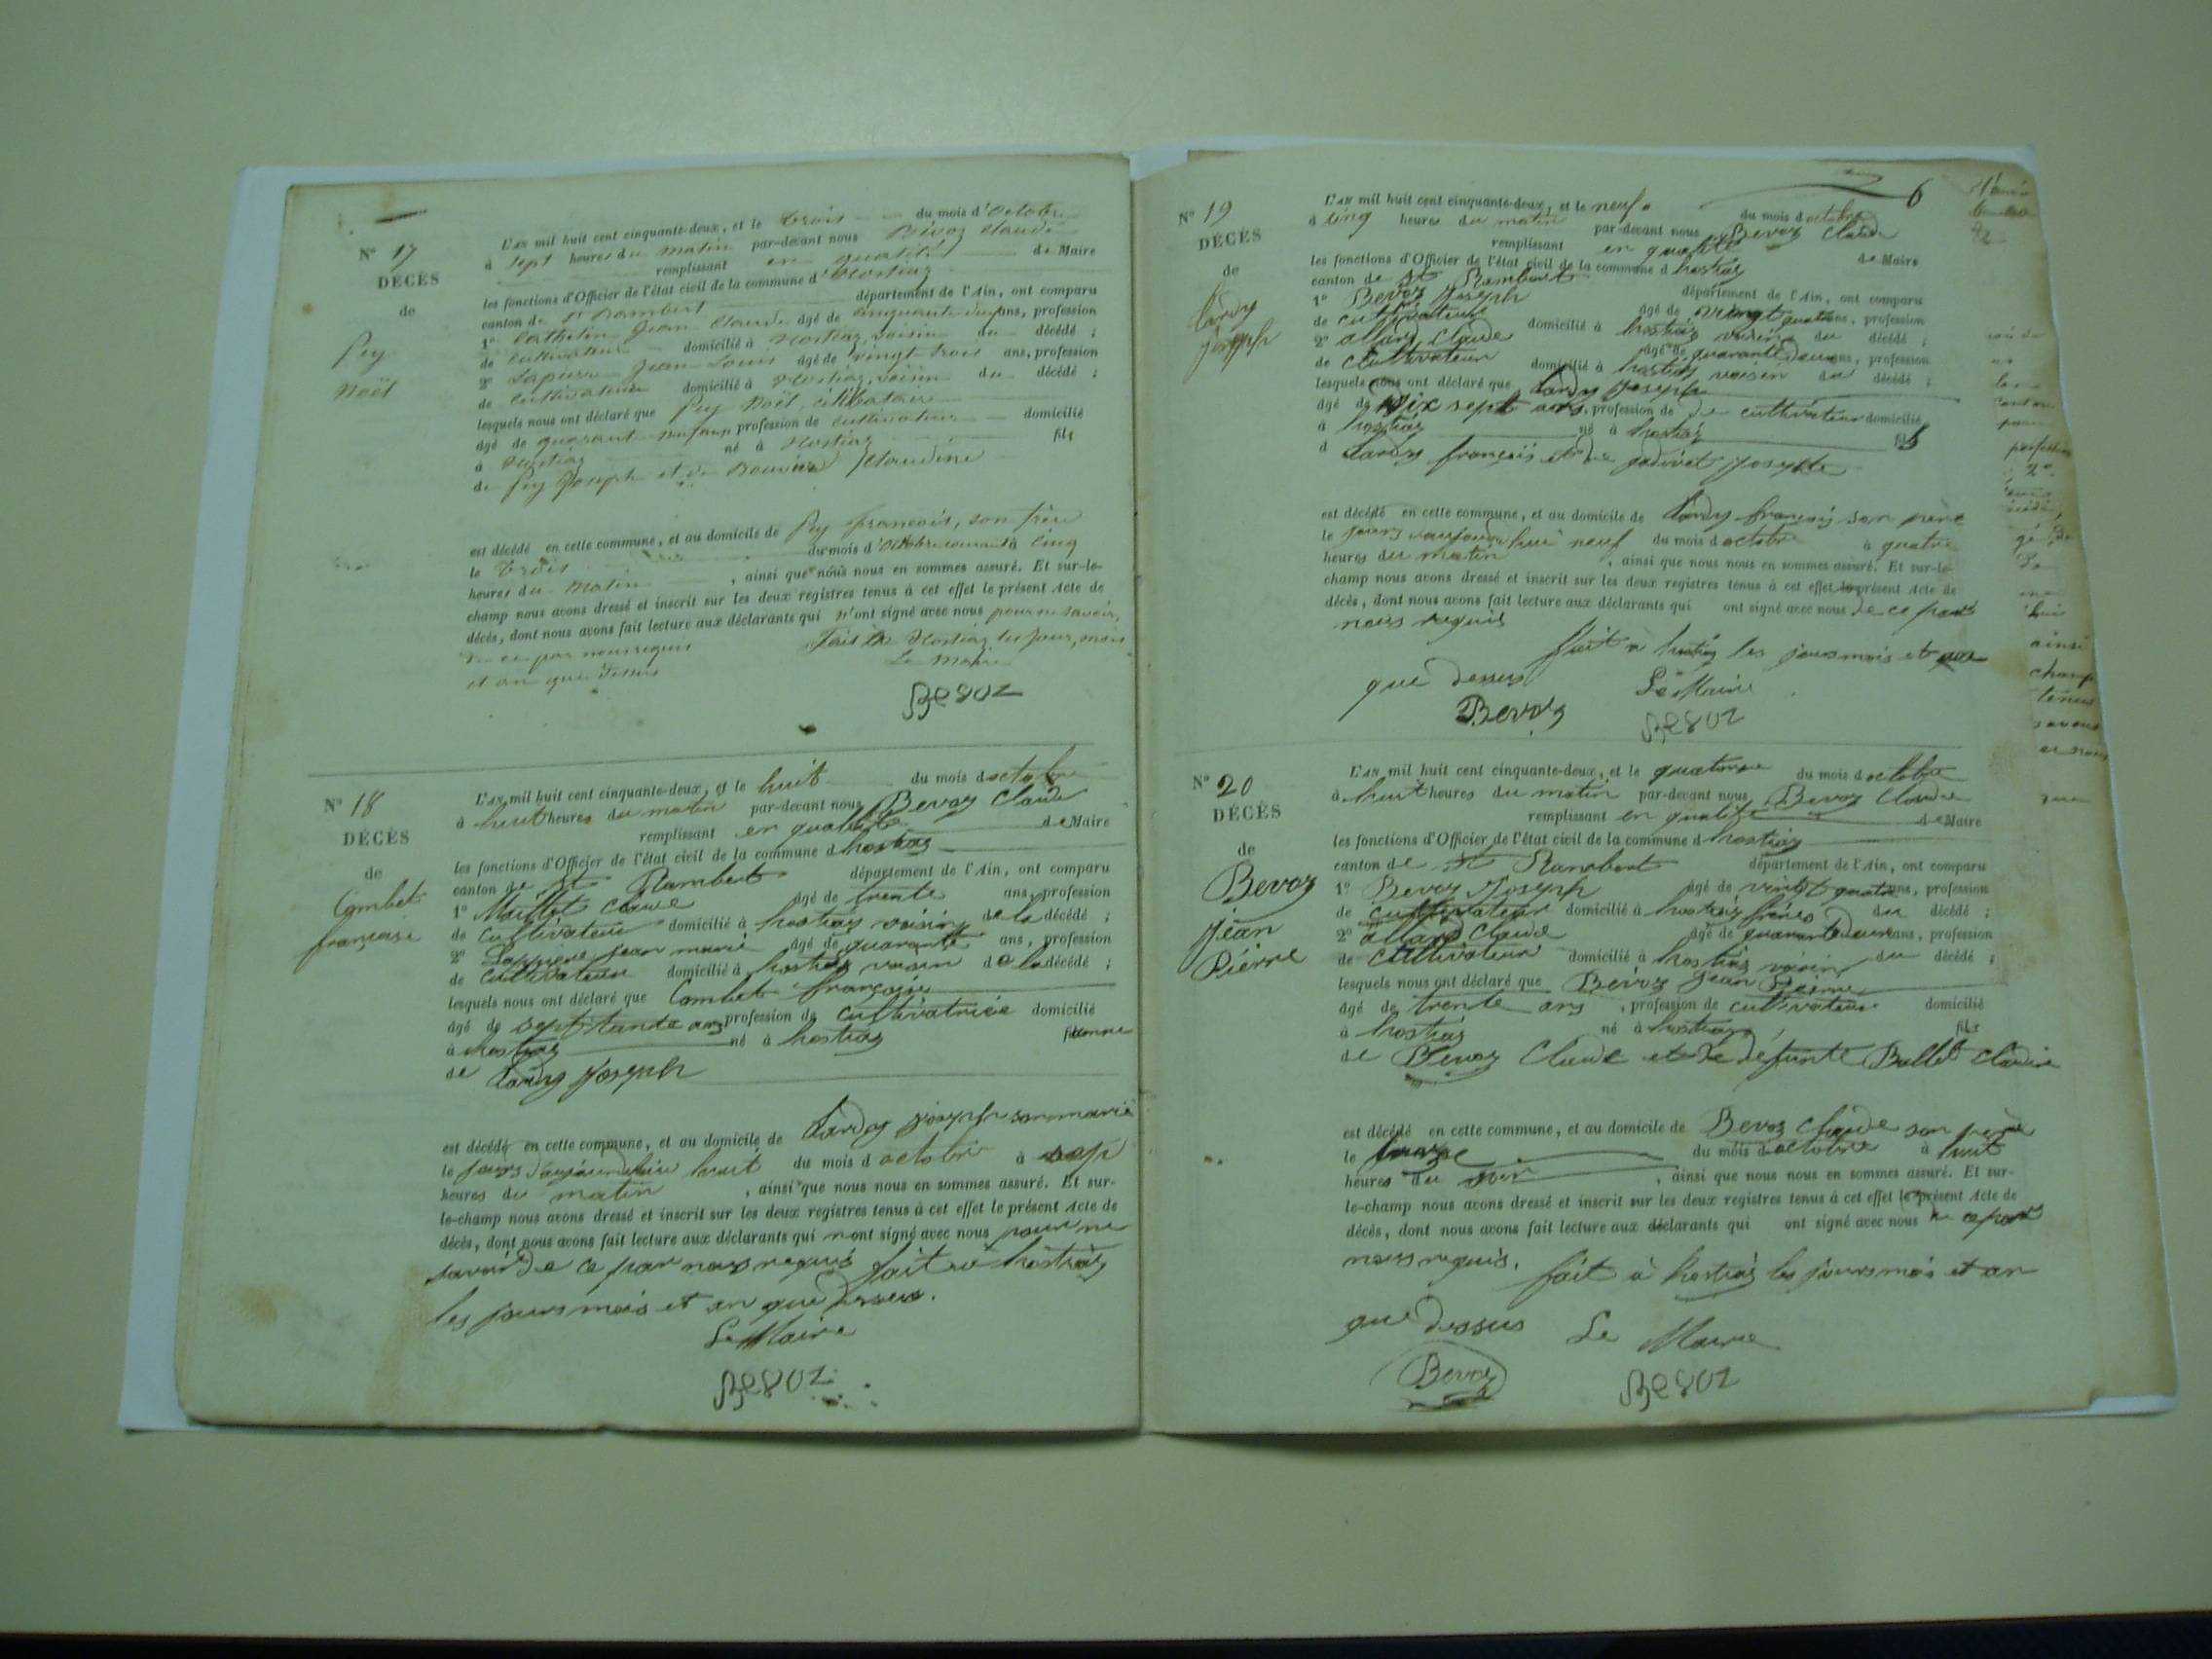 N° 17
DÉCÈS
de
Puy
Noël
L'AN mil huit cent cinquante-deux, et le trois du mois d'Octobre
à sept heures du matin par-devant nous Bévoz Claude
remplissant en qualité de Maire
les fonctions d'Officier de l'état civil de la commune d'Hostiaz
canton de St Rambert département de l'Ain, ont comparu
1° Jean Claude âgé de cinquante ans, profession
de cultivateur domicilié à Hostiaz, voisin du décédé ;
2° Lapierre Jean Louis âgé de vingt trois ans, profession
de cultivateur domicilié à Hostiaz, voisin du décédé ;
lesquels nous ont déclaré que Puy Noël, célibataire
âgé de quarant neuf ans profession de cultivateur domicilié
à Hostiaz né à Hostiaz fils
de Puy Joseph et de Claudine
est décédé en cette commune, et au domicile de Puy françois, son frère
le trois du mois d'Octobre courant à cinq
heures du matin , ainsi que nous nous en sommes assuré. Et sur-le-
champ nous avons dressé et inscrit sur les deux registres tenus à cet effet le présent Acte de
décès, dont nous avons fait lecture aux déclarants qui n'ont signé avec nous pour ne savoir,
de ce par nous requis Fait à Hostiaz les jour, mois
et an que dessus Le Maire
Bevoz
N° 18
DÉCÈS
de
Combet
françoise
L'AN mil huit cent cinquante-deux, et le huit du mois d octobre
à huit heures du matin par-devant nous Bevoz Claude
remplissant en qualité de Maire
les fonctions d'Officier de l'état civil de la commune d hostiaz
canton de St Rambert département de l'Ain, ont comparu
1° Maillet Claude âgé de trente ans, profession
de cultivateur domicilié à hostiaz voisin de la décédé ;
2° Lappierre jean marie âgé de quarante ans, profession
de cultivateur domicilié à hostiaz voisin de la décédé ;
lesquels nous ont déclaré que Combet françoise
âgé de septtante ans profession de cultivatrice domicilié
à hostiaz né à hostiaz femme
de Lardy joseph
est décédé en cette commune, et au domicile de Lardy joseph son marie
le jours d'aujourdhui huit du mois d octobre à sept
heures du matin , ainsi que nous nous en sommes assuré. Et sur-
le-champ nous avons dressé et inscrit sur les deux registres tenus à cet effet le présent Acte de
décès, dont nous avons fait lecture aux déclarants qui n ont signé avec nous pour ne
savoir de ce par nous requis fait à hostiaz
les jours mois et an que dessus.
Le Maire
Bevoz
6
N° 19
DÉCÈS
de
Lardy
joseph
L'AN mil huit cent cinquante-deux, et le neuf du mois d octobre
à cinq heures du matin par-devant nous Bevoz Claude
remplissant en qualité de Maire
les fonctions d'Officier de l'état civil de la commune d hostiaz
canton de St Rambert département de l'Ain, ont comparu
1° Bevoz Joseph âgé de vingt quatre ans, profession
de cultivateur domicilié à hostiaz voisin du décédé ;
2° allard Claude âgé de quarante deux ans, profession
de cultivateur domicilié à hostiaz voisin du décédé ;
lesquels nous ont déclaré que Lardy joseph
âgé de dix sept ans, profession de de cultivateur domicilié
à hostiaz né à hostiaz fils
d Lardy françois et de josephte
est décédé en cette commune, et au domicile de Lardy françois son père
le jours d'aujourdhui neuf du mois d octobre à quatre
heures du matin , ainsi que nous nous en sommes assuré. Et sur-le-
champ nous avons dressé et inscrit sur les deux registres tenus à cet effet le présent Acte de
décès, dont nous avons fait lecture aux déclarants qui ont signé avec nous de ce par
nous requis
fait à hostiaz les jours mois et an
que dessus Le Maire
Bevoz Bevoz
N° 20
DÉCÈS
de
Bevoz
jean
Pierre
L'AN mil huit cent cinquante-deux, et le quatorze du mois d octobre
à huit heures du matin par-devant nous Bevoz Claude
remplissant en qualité de Maire
les fonctions d'Officier de l'état civil de la commune d hostiaz
canton de St Rambert département de l'Ain, ont comparu
1° Bevoz Joseph âgé de vintgt quatre ans, profession
de cultivateur domicilié à hostiaz frère du décédé ;
2° allard Claude âgé de quarante deux ans, profession
de cultivateur domicilié à hostiaz voisin du décédé ;
lesquels nous ont déclaré que Bevoz jean Pierre
âgé de trente ans , profession de cultivateur domicilié
à hostiaz né à hostiaz fils
de Bevoz Claude et de defunte Ballet Claudine
est décédé en cette commune, et au domicile de Bevoz Claude son père
le du mois d octobre à huit
heures du soir , ainsi que nous nous en sommes assuré. Et sur-
le-champ nous avons dressé et inscrit sur les deux registres tenus à cet effet le présent Acte de
décès, dont nous avons fait lecture aux déclarants qui ont signé avec nous de ce par
nous requis. fait à hostiaz les jours mois et an
que dessus Le Maire
Bevoz Bevoz